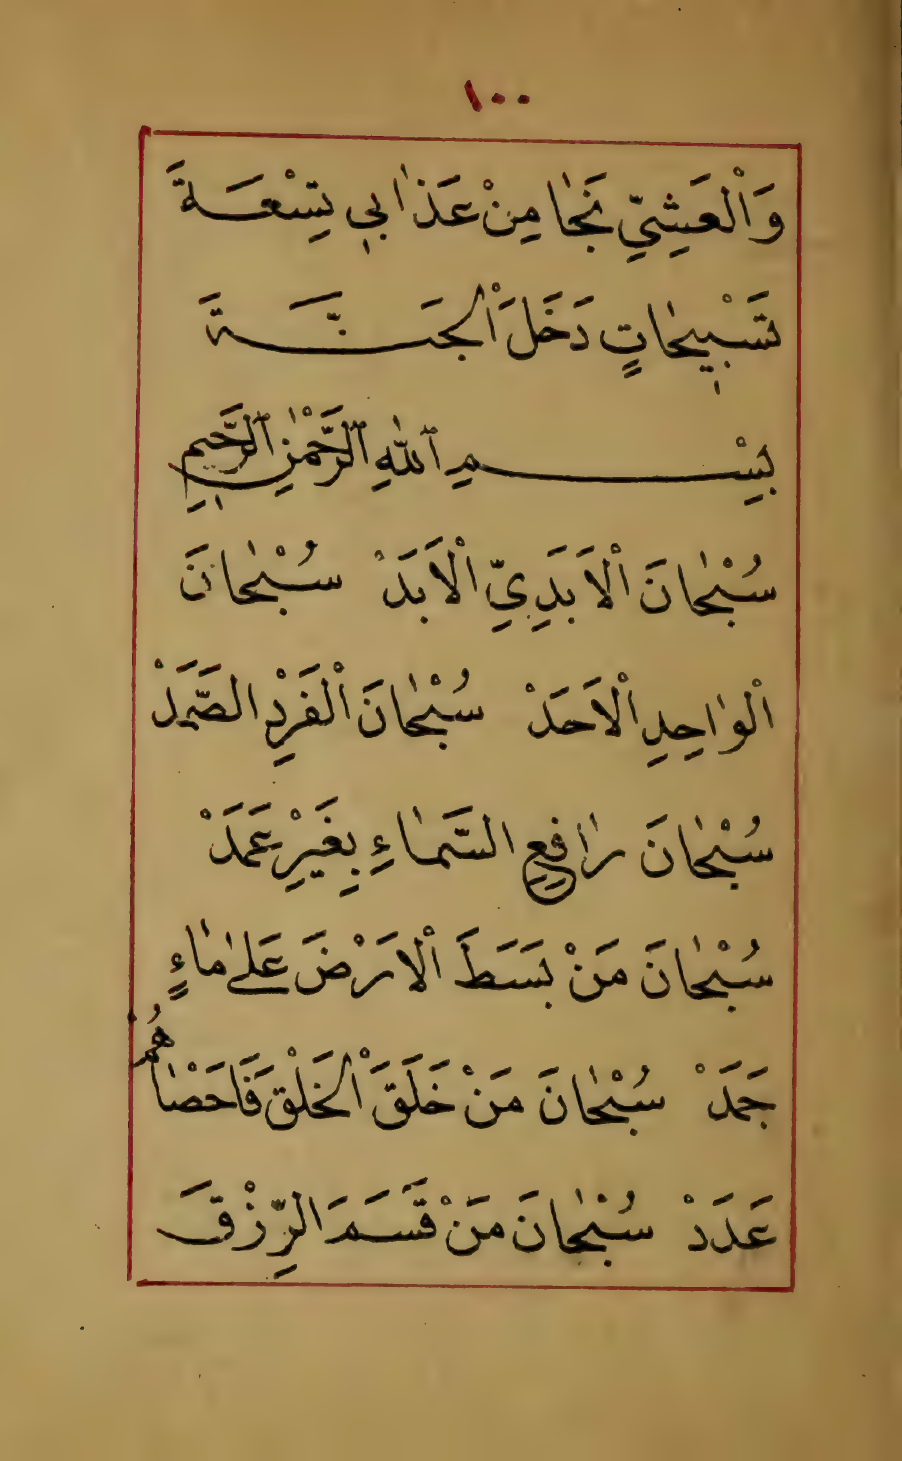 ١٠٠
وَالْعَشِيِّ نَجَا مِنْ عَذَابِي تِسْعَةَ
تَسْبِيحَاتٍ دَخَلَ الْجَنَّةَ
بِسْمِ ٱللّٰهِ ٱلرَّحْمٰنِ ٱلرَّحِيمِ
سُبْحَانَ الْاَبَدِيِّ الْاَبَدْ سُبْحَانَ
الْوَاحِدِ الْاَحَدْ سُبْحَانَ الْفَرْدِ الصَّمَدْ
سُبْحَانَ رَافِعِ السَّمَاءِ بِغَيْرِ عَمَدْ
سُبْحَانَ مَنْ بَسَطَ الْاَرْضَ عَلٰى مَاءٍ
جَمَدْ سُبْحَانَ مَنْ خَلَقَ الْخَلْقَ فَاَحْصَاهُمْ
عَدَدْ سُبْحَانَ مَنْ قَسَمَ الرِّزْقَ